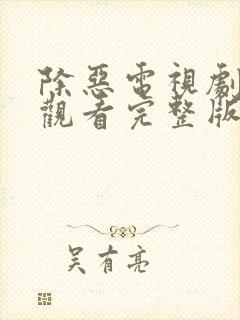 除惡電視劇
觀看完整版
吴有亮